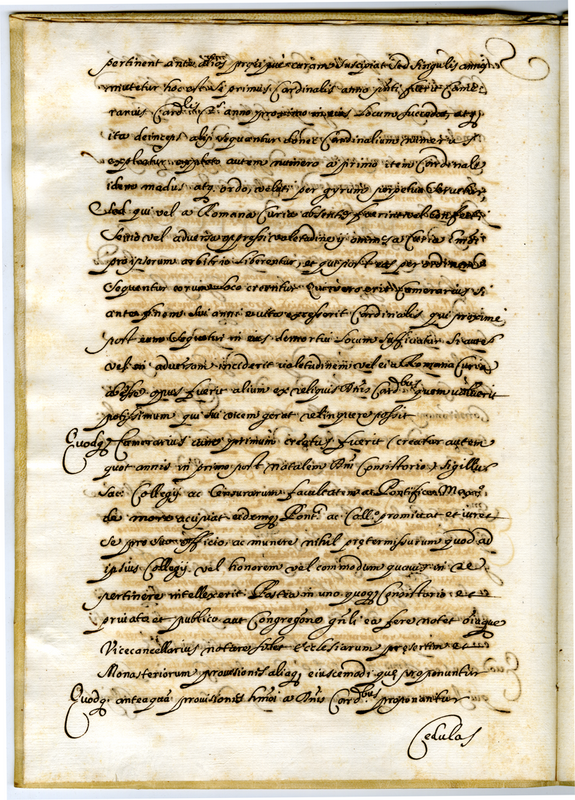 pertinent ante alios propriamque curam suscipiat sed singulis annis
mutetur hoc est si primus Cardinalis anno fuerit Came-
rarius Card.lis anno proximo in eius locum succedat, atq
ita deinceps alij sequantur donec Cardinalium numerus
expleatur, expleto autem numero a primo item Cardinale
idem modus atq. ordo, veluti per gyrum perpetuo servetur,
Sed qui vel a Romana Curia absentes fuerint vel
Senio vel adversa valetudine omnes a Curia
pro ipsorum arbitrio liberentur, et qui post eos per ordinem
Sequentur eorum loco creentur Qui vero erit Camerarius si
ante finem sui anni e vita excesserit Cardinalis qui proxime
post eum Sequetur in eius demortui locum sufficiatur Si autem
vel in adversam inciderit valetudinem vel eum a Romana Curia
abesse opus fuerit alium ex reliquis Dnis Card.bus quem voluerit
potissimum qui sui vicem gerat relinquere possit
Quodq Camerarius cum primum creatus fuerit (creatur autem
quot annis in primo post natalem Dni Consistorio) sigillum
Sac. Collegij ac Censurarum facultatem at Pontifice Maximo
de more accipiat eidemq Pont. ac Coll.o promittat et iuret
Se pro suo officio, ac munere nihil pretermissurum quod ad
ipsius Collegij vel honorem vel commodum quovis in re
pertinere intellexerit Postea in uno quoq Consistorio et
privato et publico aut Congregone gnli ea fere notet
Vicecancellarius notare solet Ecclesiarum presertim et
Monasteriorum provisiones aliaq eiuscemodi que proponuntur
Quodq. antequa provisiones hmoi a Dnis Card.bus proponantur
Cedulas